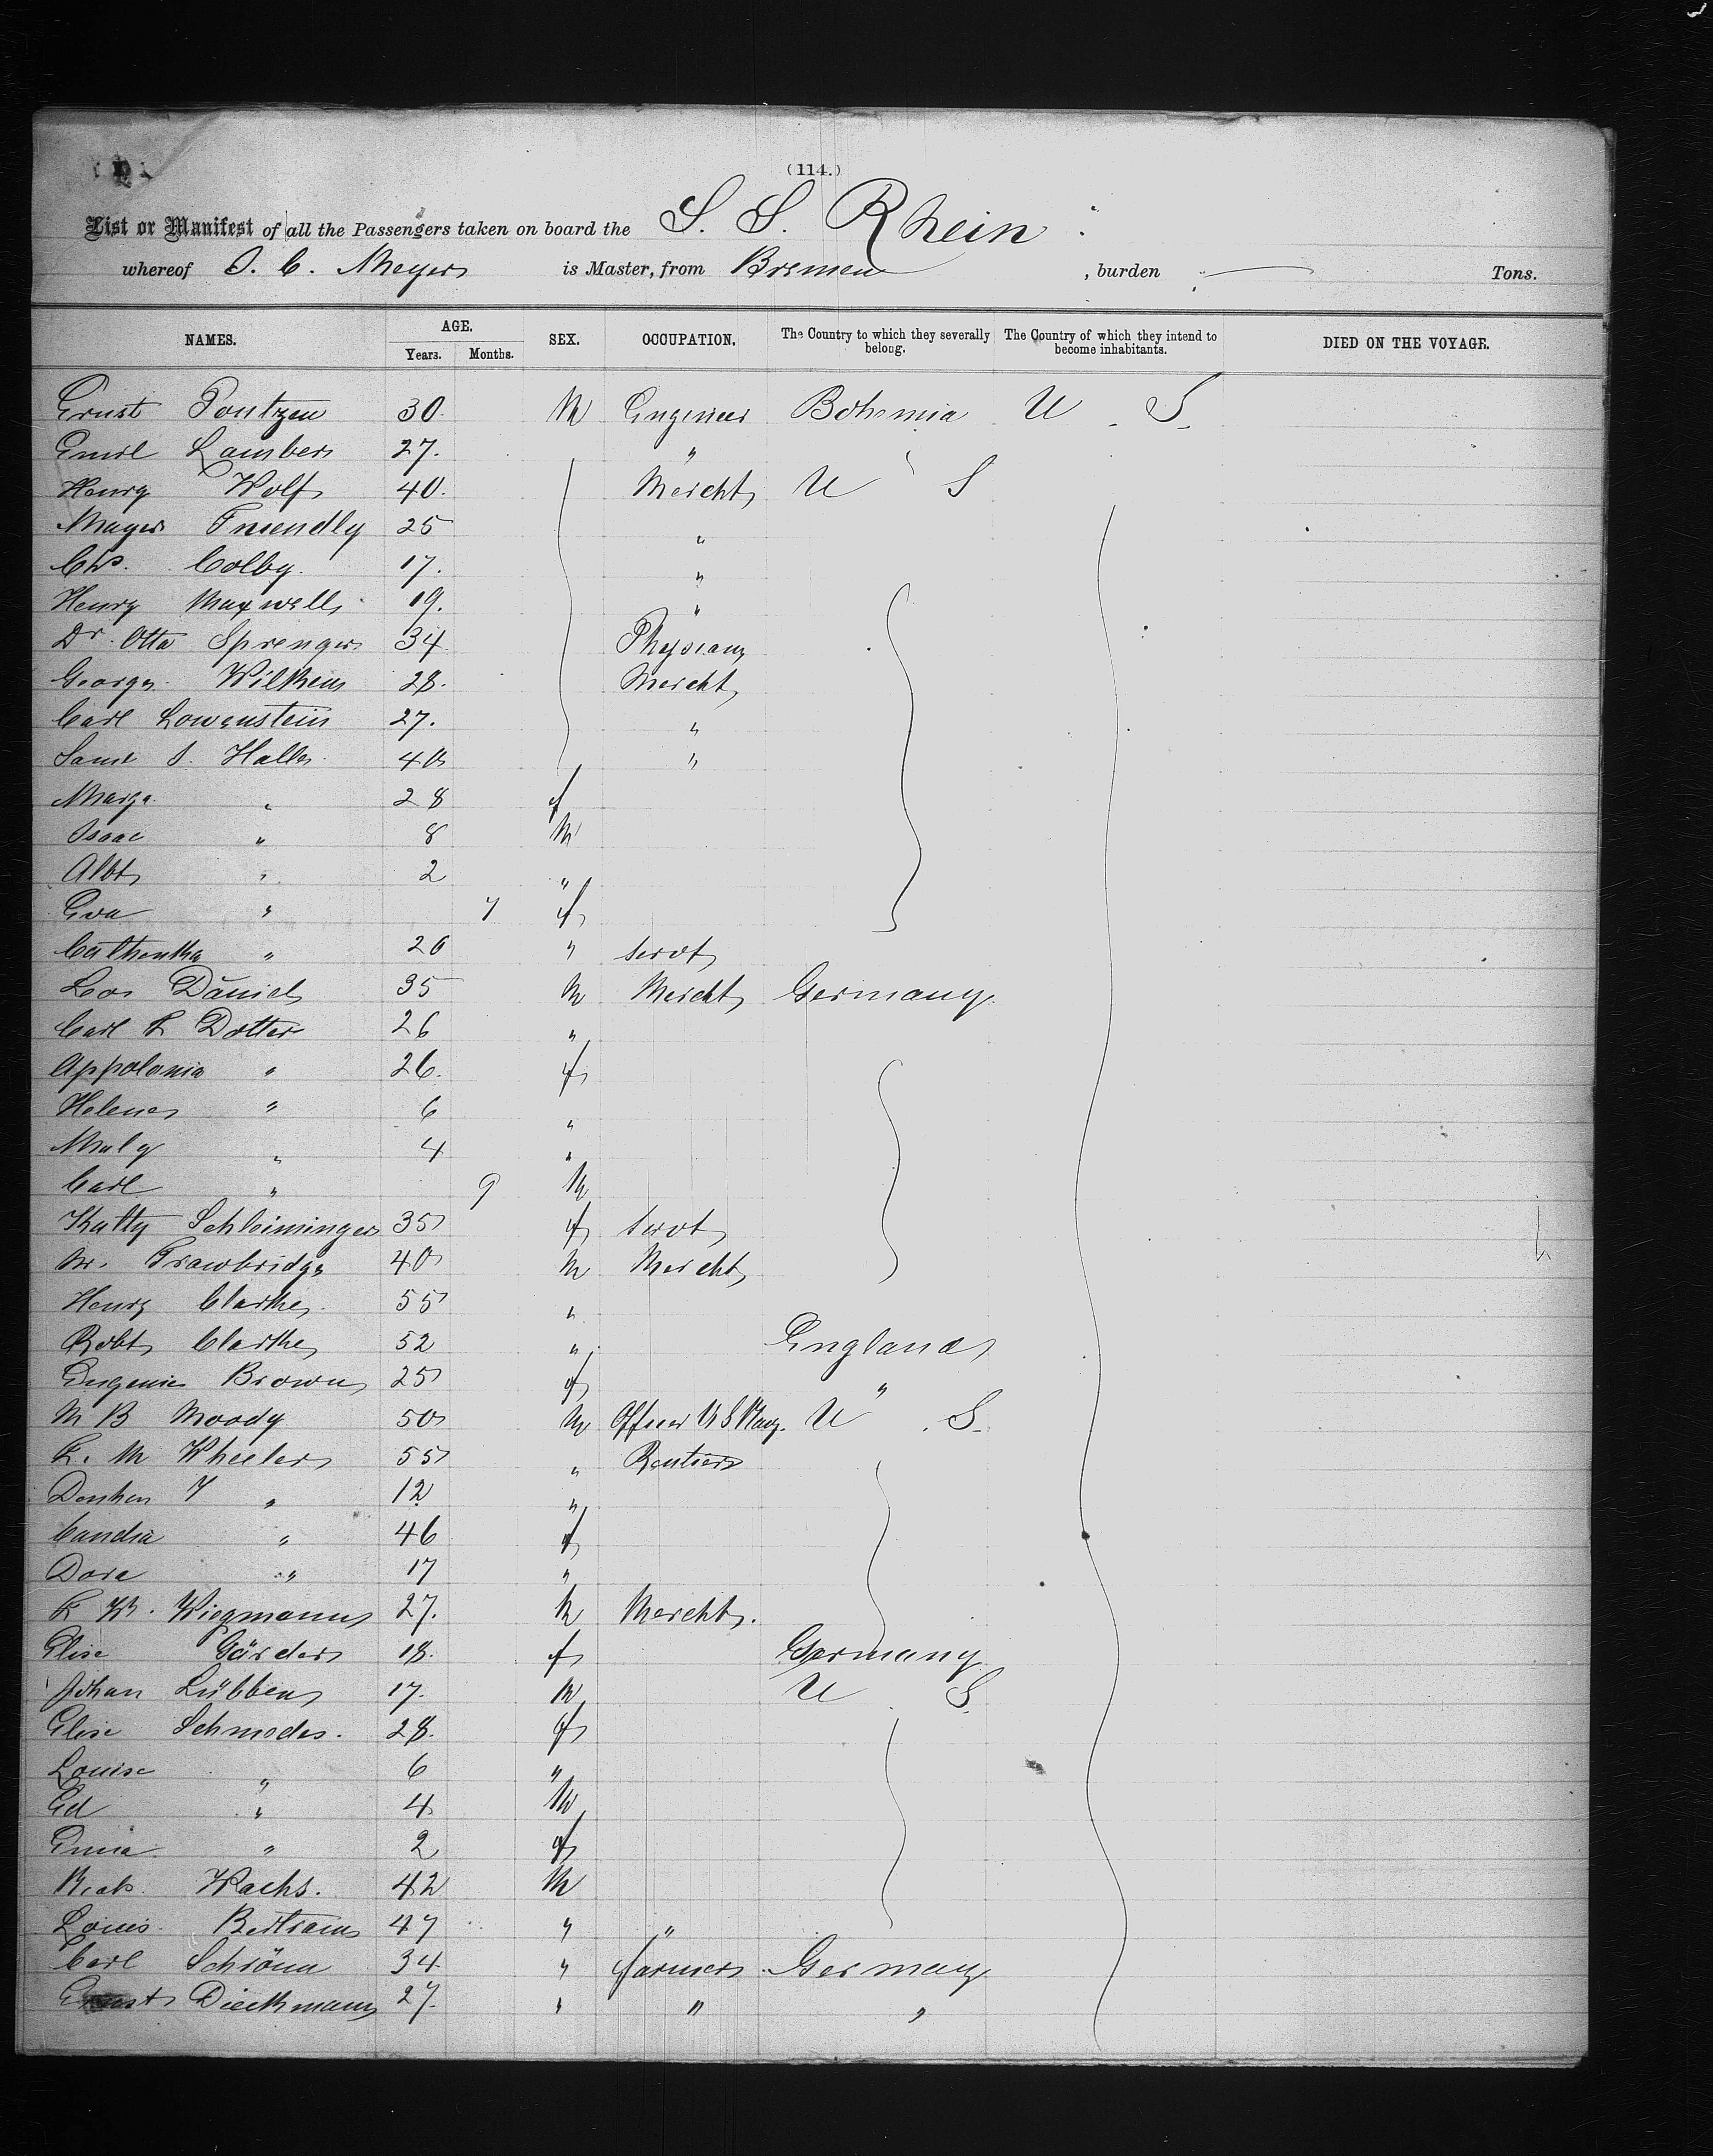 (114.)
List or Manifest of all the Passengers taken on board the S. S. Rhein
whereof J. C. Meyer is Master, from Bremen , burden — Tons.
NAMES. AGE. Years. Months. SEX. OCCUPATION. The Country to which they severally belong. The Country of which they intend to become inhabitants. DIED ON THE VOYAGE.
Ernst Pontzen 30. M Engineer Bohemia U. S.
Emil Lamber 27. " "
Henry Wolf 40. Mercht U S
Mayer Friendly 25 "
Chs. Colby. 17. "
Henry Maxwell 19. "
Dr. Otto Sprenger 34
George Wilkens 28. Mercht
Carl Lowenstein 27. "
Saml S. Haller 40 "
Marga. " 28 f
Isaac " 8 M
Albt " 2 "
Eva " 7 f
" 26 " servt
Leo Daniel 35 M Mercht Germany
Carl F Dotter 26 "
Appolonia " 26. f
Helene " 6 "
Maly " 4 "
Carl " 9 M
Katty Schleiminger 35 f servt
Trowbridge 40 M Mercht
Henry Clarke 55 "
Robt Clarke 52 " England
Eugenie Brown 25 f "
M B Moody 50 M Officer U S Navy. U. S.
F. M Wheeler 55 " Rentier
" 12 "
" 46 f
Dora " 17 "
F W. Wiegmann 27. M Mercht.
Elise Görder 18. f Germany
Johan Lübben 17. M U. S.
Elise Schmodes. 28. f
Louise " 6 "
Ed " 4 M
" 2 f
Wachs. 42 M
Louis Bertram 47 " "
Carl Schrönn 34 " farmer Germany
Ernst Dieckmann 27. " " "